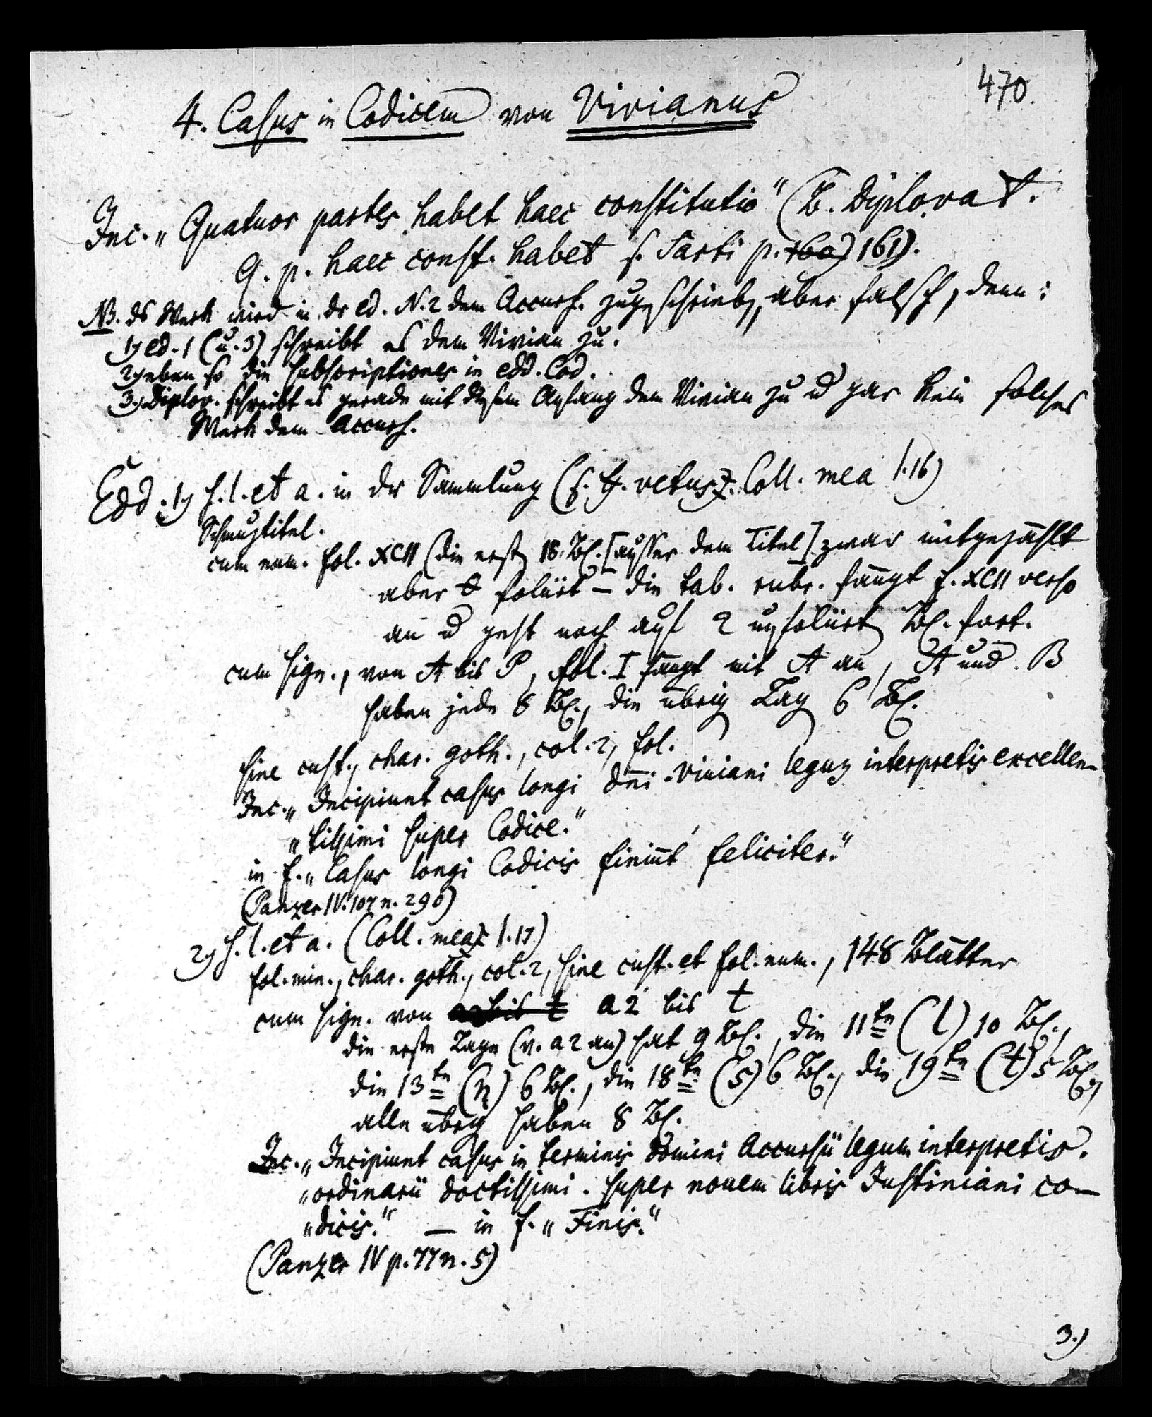 470.
4. Casus in Codicem von Vivianus
Inc. „Quatuor partes habet haec constitutio“ (B. Diplovat.
q. p. haec const. habet s. Sarti p. 160) 161).
NB. ds Werk wird in dr ed. N. 2 dem Accurs. zugeschrieben, aber falsch, denn:
1) ed. 1 (u. 3) schreibt es dem Vivian zu.
2) eben so die subscriptiones in edd. Cod.
3) Diplov. schreibt es gerade mit diesem Anfang dem Vivian zu u gar kein solches
Werk dem Accurs.
Edd. 1) s. l. et a. in der Sammlung (s. vetus Coll. mea I. 16)
Schmuztitel.
cum num. fol. XCII (die ersten 18 Bl. [ausser dem Titel] zwar mitgezählt
aber foliirt – die tab. rubr. fängt f. XCII verso
an u geht noch auf 2 unfoliirten Bl. fort.
cum sign., von A bis P, fol. I fängt mit A an, A und B
haben jede 8 Bl., die übrigen Lagen 6 Bl.
sine cust., char. goth., col. 2, fol.
Inc. „Incipiunt casus longi dni Viviani legum interpretis excellen-
„tissimi super Codice.“
in f. „Casus longi Codicis finiunt feliciter.“
(Panzer IV. 107 n. 290)
2) s. l. et a. (Coll. mea I. 17)
fol. min., char. goth., col. 2, sine cust. et fol. num., 148 Blätter
cum sign. von a2 bis t a2 bis t
die erste Lage (v. a2 an) hat 9 Bl., die 11te (l) 10 Bl.,
die 13te (n) 6 Bl., die 18te (s) 6 Bl., die 19te (t) 5 Bl.,
alle übrigen haben 8 Bl.
Inc. „Incipiunt casus in terminis domini Accursii legum interpretis.
„ordinarii doctissimi. super novem libris Justiniani co-
„dicis.“ — in f. „Finis.“
(Panzer IV p. 77 n. 5)
3.)